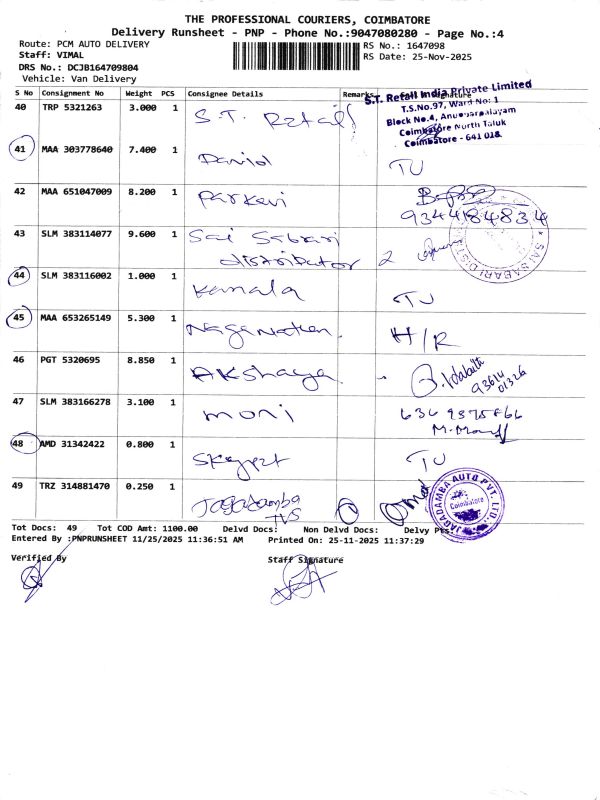 THE PROFESSIONAL COURIERS, COIMBATORE
Delivery Runsheet - PNP - Phone No.:9047080280 - Page No.:4
Route: PCM AUTO DELIVERY
RS No.: 1647098
Staff: VIMAL
RS Date: 25-Nov-2025
DRS No.: DCJB164709804
Vehicle: Van Delivery
S No Consignment No Weight PCS Consignee Details Remarks Signature
40 TRP 5321263 3.000 1 S.T. Retail
S.T. Retail India Private Limited
T.S.No.97, Ward No: 1
Block No.4, Anupparpalayam
Coimbatore North Taluk
Coimbatore - 641 018.
41 MAA 303778640 7.400 1 David TU
42 MAA 651047009 8.200 1 Parkavi
9344184834
43 SLM 383114077 9.600 1 Sai Sabari
distributor 2
SAI SABARI
44 SLM 383116002 1.000 1 Kamala TU
45 MAA 653265149 5.300 1 Naganathan. H/R
46 PGT 5320695 8.850 1 Akshaya -
93614
01326
47 SLM 383166278 3.100 1 moni
48 AMD 31342422 0.800 1 TU
49 TRZ 314881470 0.250 1 Jagadamba
TVS
JAGADAMBA AUTO PVT. LTD.
Coimbatore
Tot Docs: 49 Tot COD Amt: 1100.00 Delvd Docs: Non Delvd Docs: Delvy Pts:
Entered By :PNPRUNSHEET 11/25/2025 11:36:51 AM Printed On: 25-11-2025 11:37:29
Verified By Staff Signature